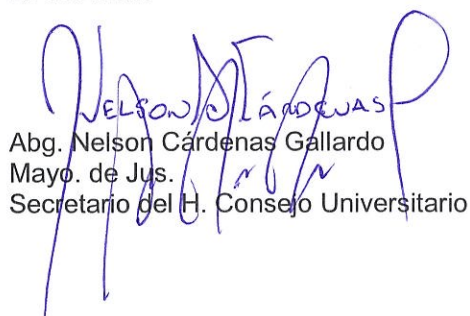 NELSON CÁRDENAS
Abg. Nelson Cárdenas Gallardo
Mayo. de Jus.
Secretario del H. Consejo Universitario